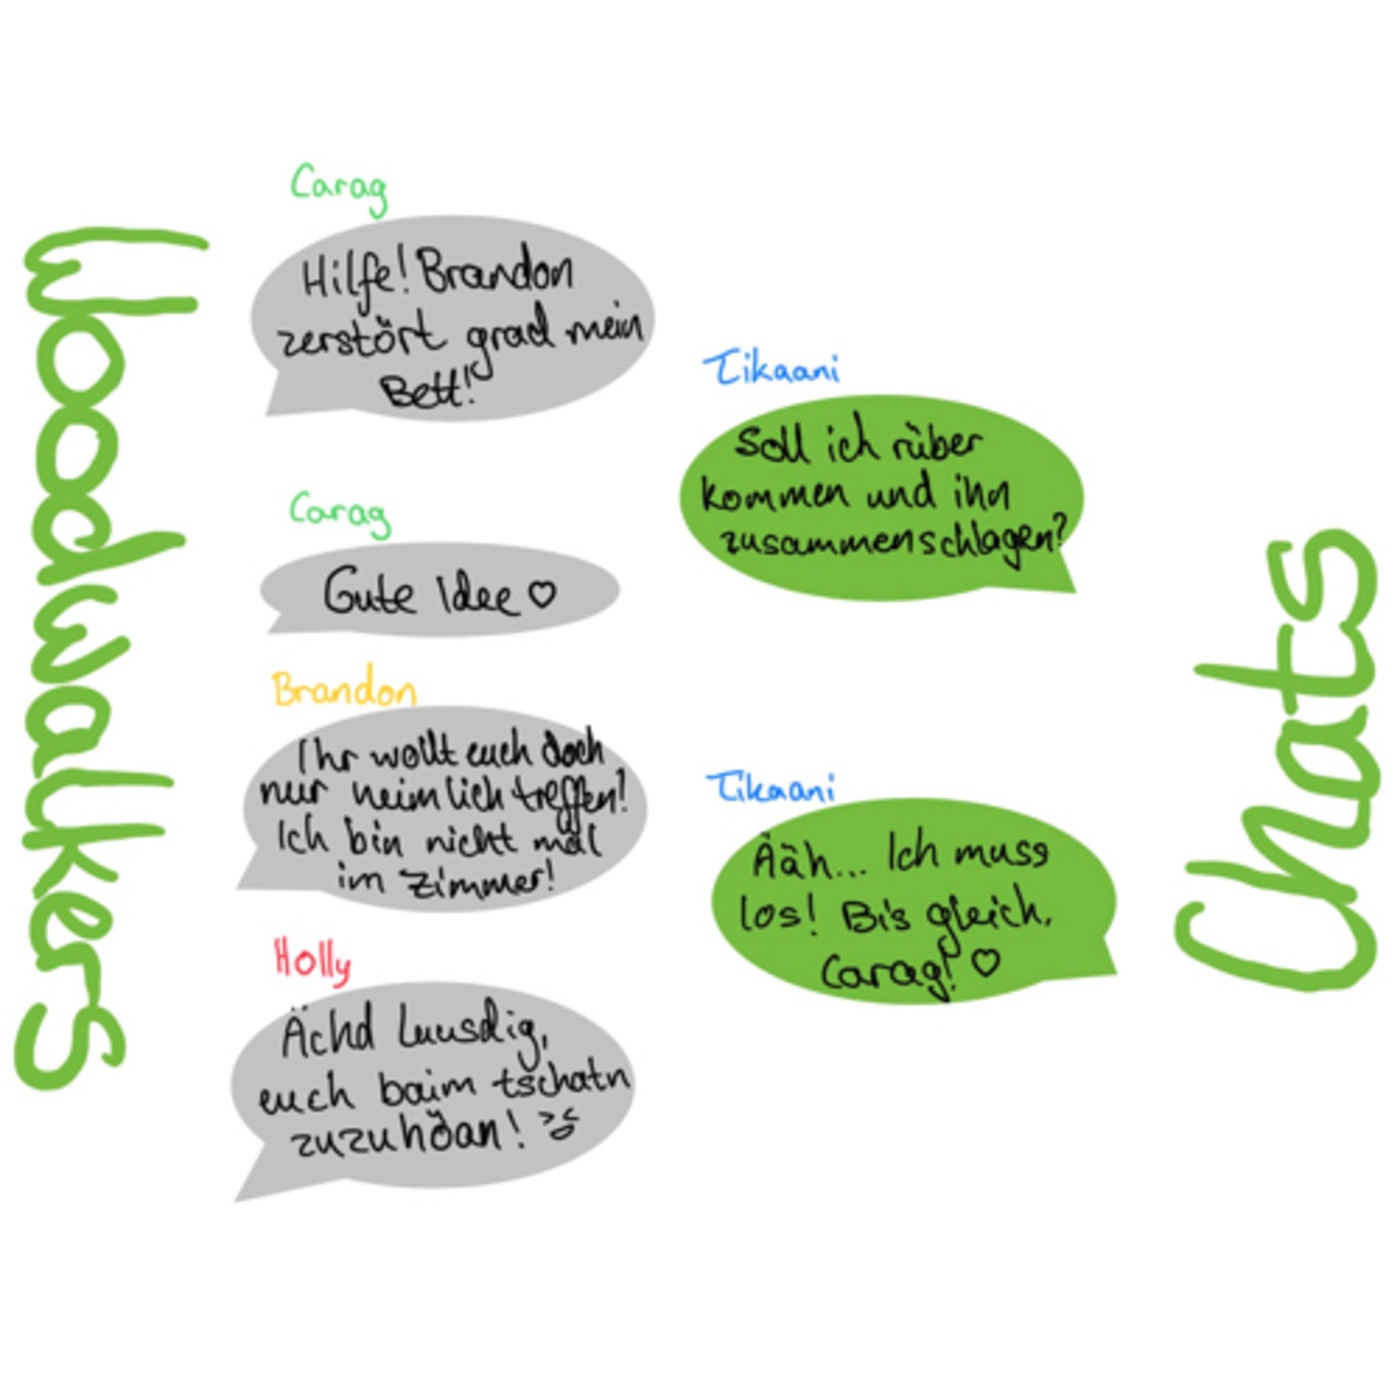 Woodwalkers
Carag
Hilfe! Brandon
zerstört grad mein
Bett!
Tikaani
Soll ich rüber
kommen und ihn
zusammenschlagen?
Carag
Gute Idee ♡
Brandon
Ihr wollt euch doch
nur heimlich treffen!
Ich bin nicht mal
im Zimmer!
Tikaani
Ääh... Ich muss
los! Bis gleich,
Carag! ♡
Holly
Ächd Luusdig,
euch baim tschatn
zuzuhöan!
Chats